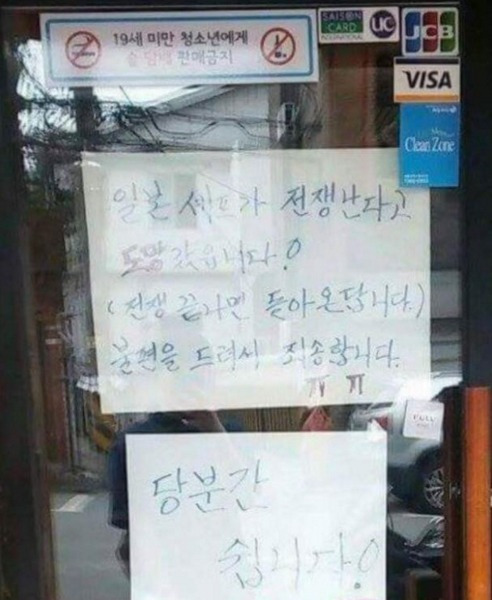 19세 미만 청소년에게
술·담배 판매금지
SAISON
CARD
INTERNATIONAL
UC
JCB
VISA
Clean Zone
일본 셰프가 전쟁난다고
도망갔읍니다!
(전쟁 끝나면 돌아온답니다.)
불편을 드려서 죄송합니다.
ㅠ ㅠ
당분간
쉽니다!